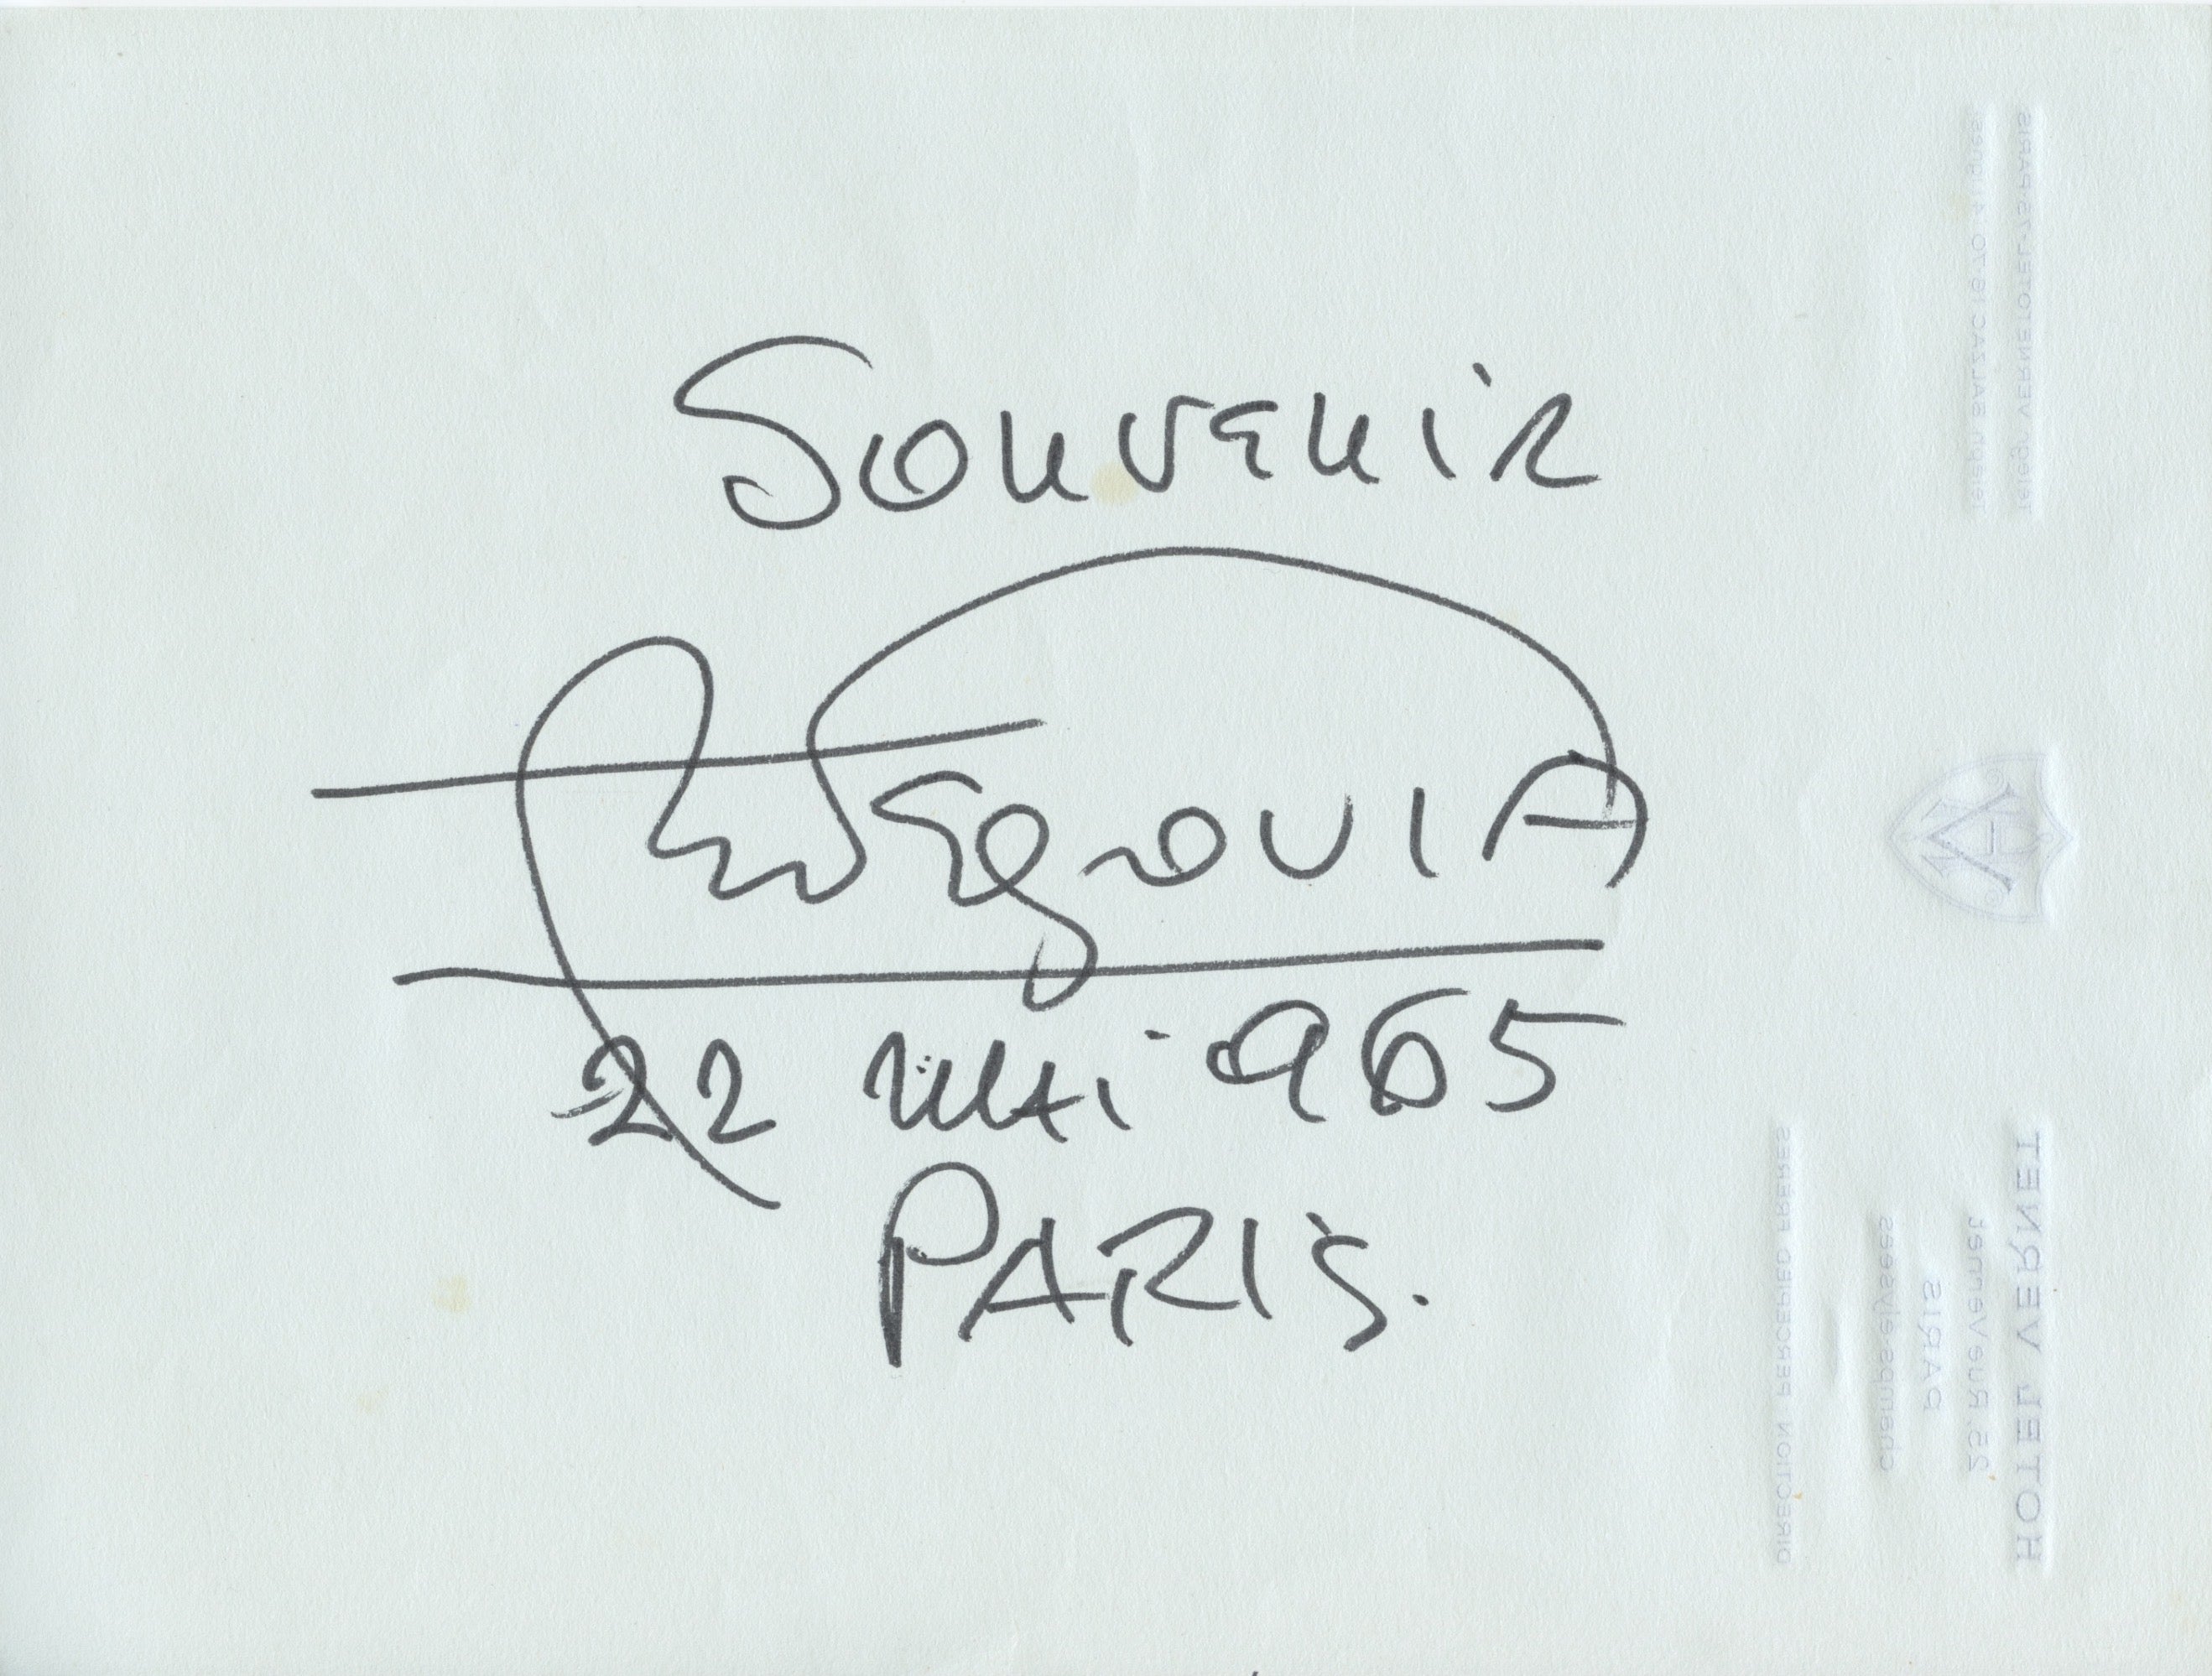 Souvenir
Segovia
22 mai 965
PARIS.
Teleph BALZAC 18-70 4 lignes
Telegr VERNETOTEL-75 PARIS
HOTEL VERNET
25, Rue Vernet
PARIS
Champs-elysées
DIRECTION PERCEPIED FRÈRES